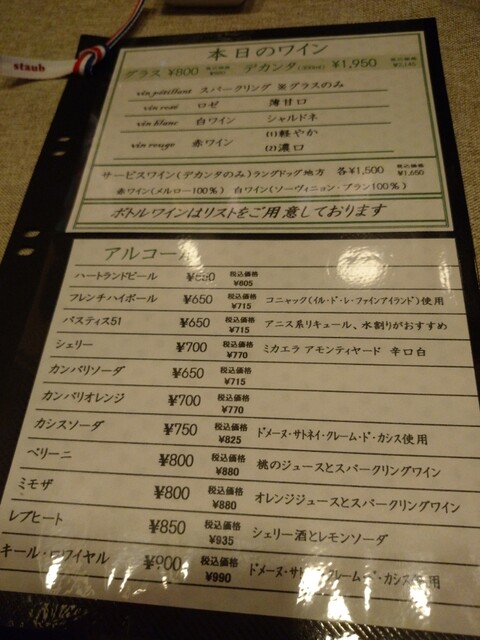 staub
本日のワイン
グラス ¥800 税込価格 ¥880 デカンタ(500ml) ¥1,950 税込価格 ¥2,145
vin pétillant スパークリング ※グラスのみ
vin rosé ロゼ 薄甘口
vin blanc 白ワイン シャルドネ
vin rouge 赤ワイン (1)軽やか
(2)濃口
サービスワイン(デカンタのみ)ラングドッグ地方 各¥1,500 税込価格 ¥1,650
赤ワイン(メルロー100%) 白ワイン(ソーヴィニョン・ブラン100%)
ボトルワインはリストをご用意しております
アルコール
ハートランドビール ¥550 税込価格 ¥605
フレンチハイボール ¥650 税込価格 ¥715 コニャック(イル・ド・レ・ファインアイランド)使用
パスティス51 ¥650 税込価格 ¥715 アニス系リキュール、水割りがおすすめ
シェリー ¥700 税込価格 ¥770 ミカエラ アモンティヤード 辛口白
カンパリソーダ ¥650 税込価格 ¥715
カンパリオレンジ ¥700 税込価格 ¥770
カシスソーダ ¥750 税込価格 ¥825 ドメーヌ・サトネイ・クレーム・ド・カシス使用
ベリーニ ¥800 税込価格 ¥880 桃のジュースとスパークリングワイン
ミモザ ¥800 税込価格 ¥880 オレンジジュースとスパークリングワイン
レブヒート ¥850 税込価格 ¥935 シェリー酒とレモンソーダ
キール・ロワイヤル ¥900 税込価格 ¥990 ドメーヌ・サトネイ・クレーム・ド・カシス使用